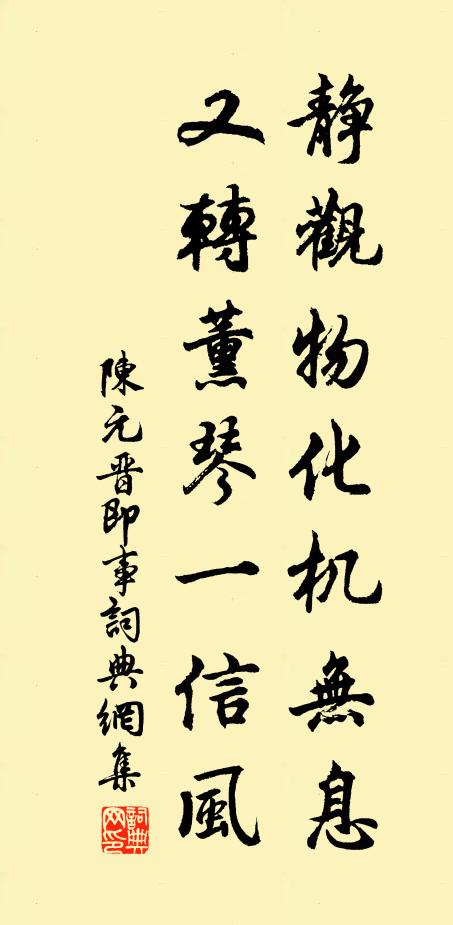 静觀物化机無息
又轉薰琴一信風
陳元晋即事詞典網集
詞典網印